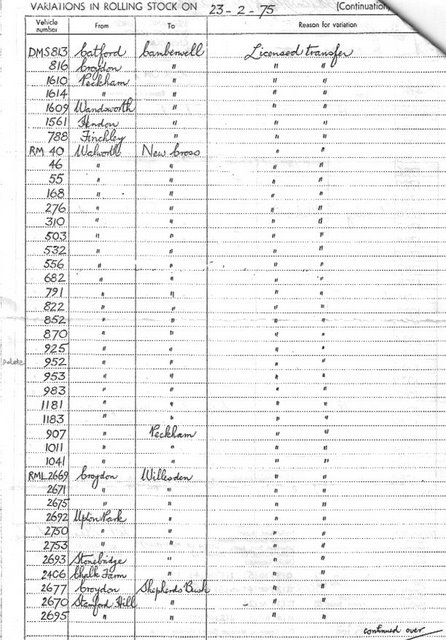 VARIATIONS IN ROLLING STOCK ON 23-2-75 (Continuation
Vehicle number From To Reason for variation
DMS 813 Catford Camberwell Licensed transfer
816 Croydon " " "
1610 Peckham " " "
1614 " " " "
1609 Wandsworth " " "
1561 Hendon " " "
788 Finchley " " "
RM 40 Walworth New Cross " "
46 " " " "
55 " " " "
168 " " " "
276 " " " "
310 " " " "
503 " " " "
532 " " " "
556 " " " "
682 " " " "
791 " " " "
822 " " " "
852 " " " "
870 " " " "
925 " " " "
952 " " " "
953 " " " "
983 " " " "
1181 " " " "
1183 " " " "
907 " Peckham " "
1011 " " " "
1041 " " " "
RML 2669 Croydon Willesden " "
2671 " " " "
2675 " " " "
2692 Upton Park " " "
2750 " " " "
2753 " " " "
2693 Stonebridge " " "
2406 Chalk Farm " " "
2677 Croydon Shepherds Bush " "
2670 Stamford Hill " " "
2695 " " " "
continued over